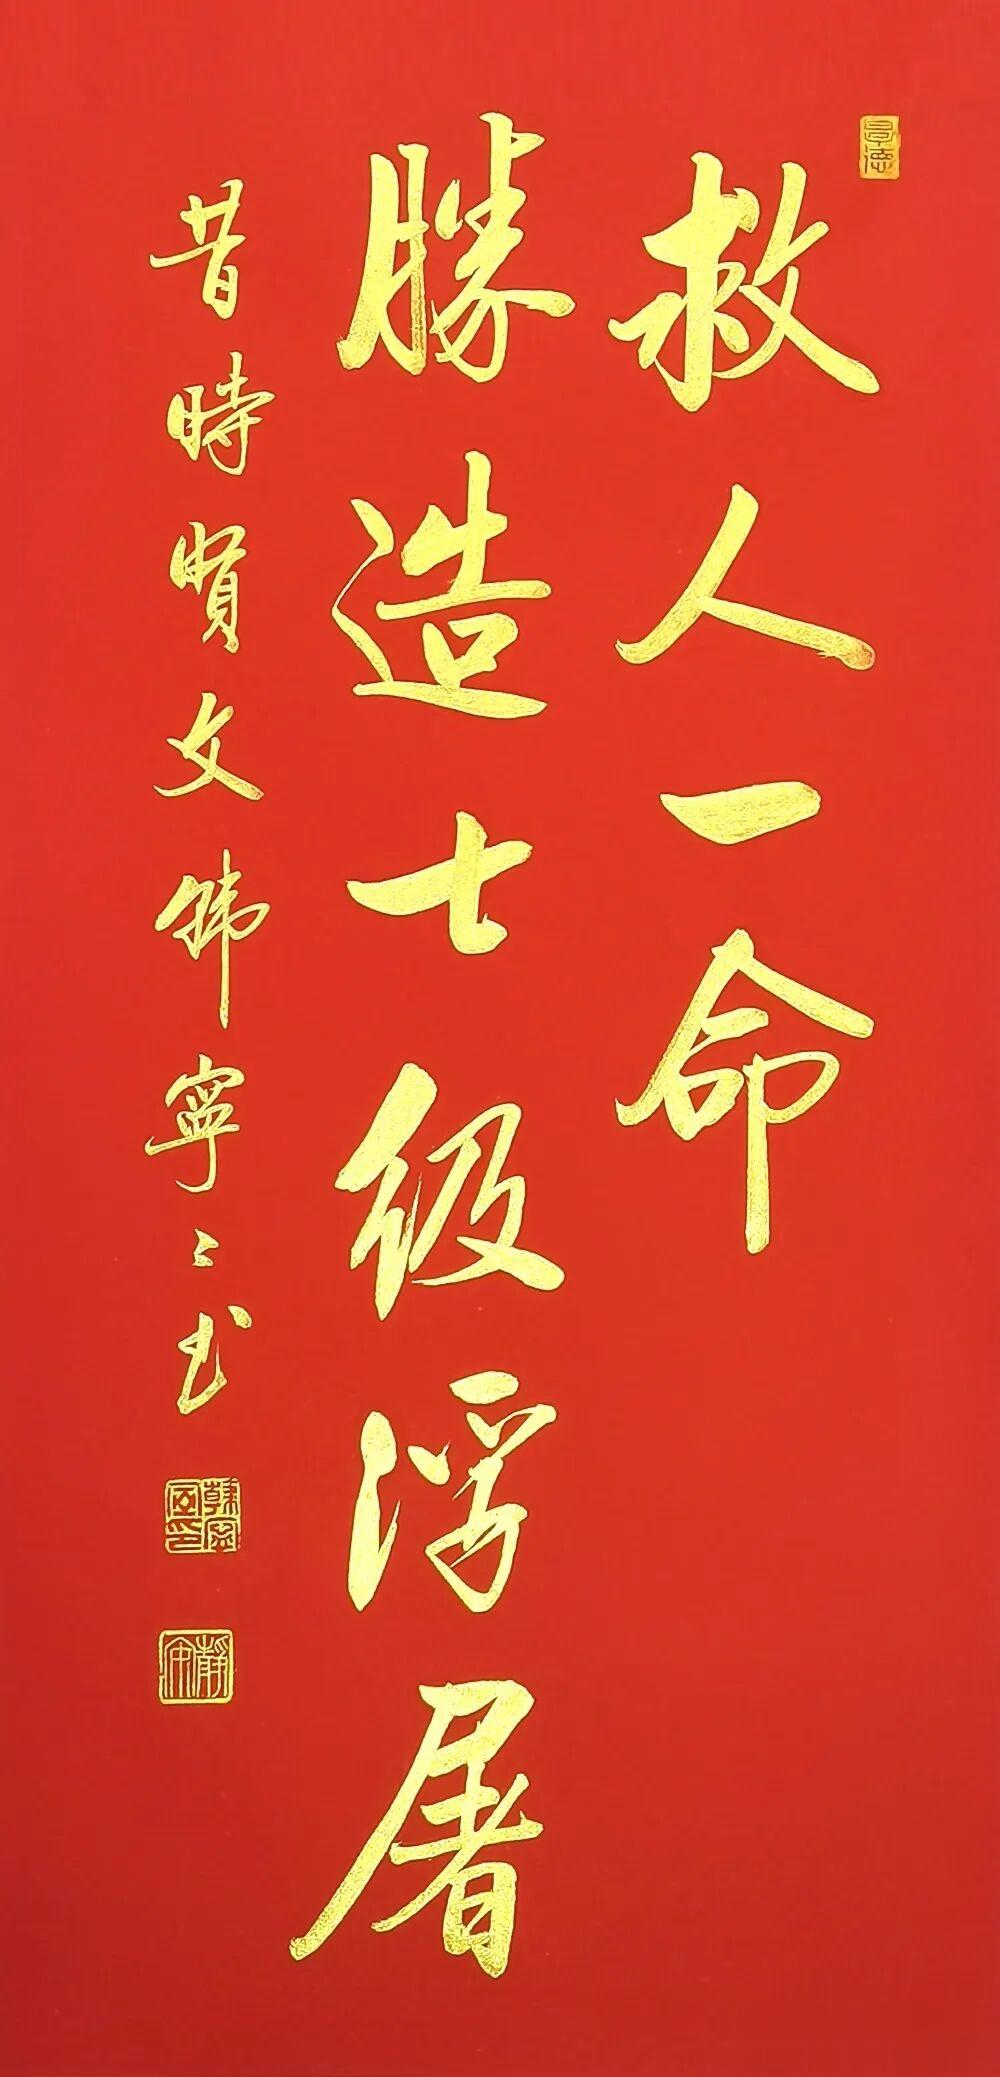 救人一命
勝造七级浮屠
昔時賢文韩寧〻书